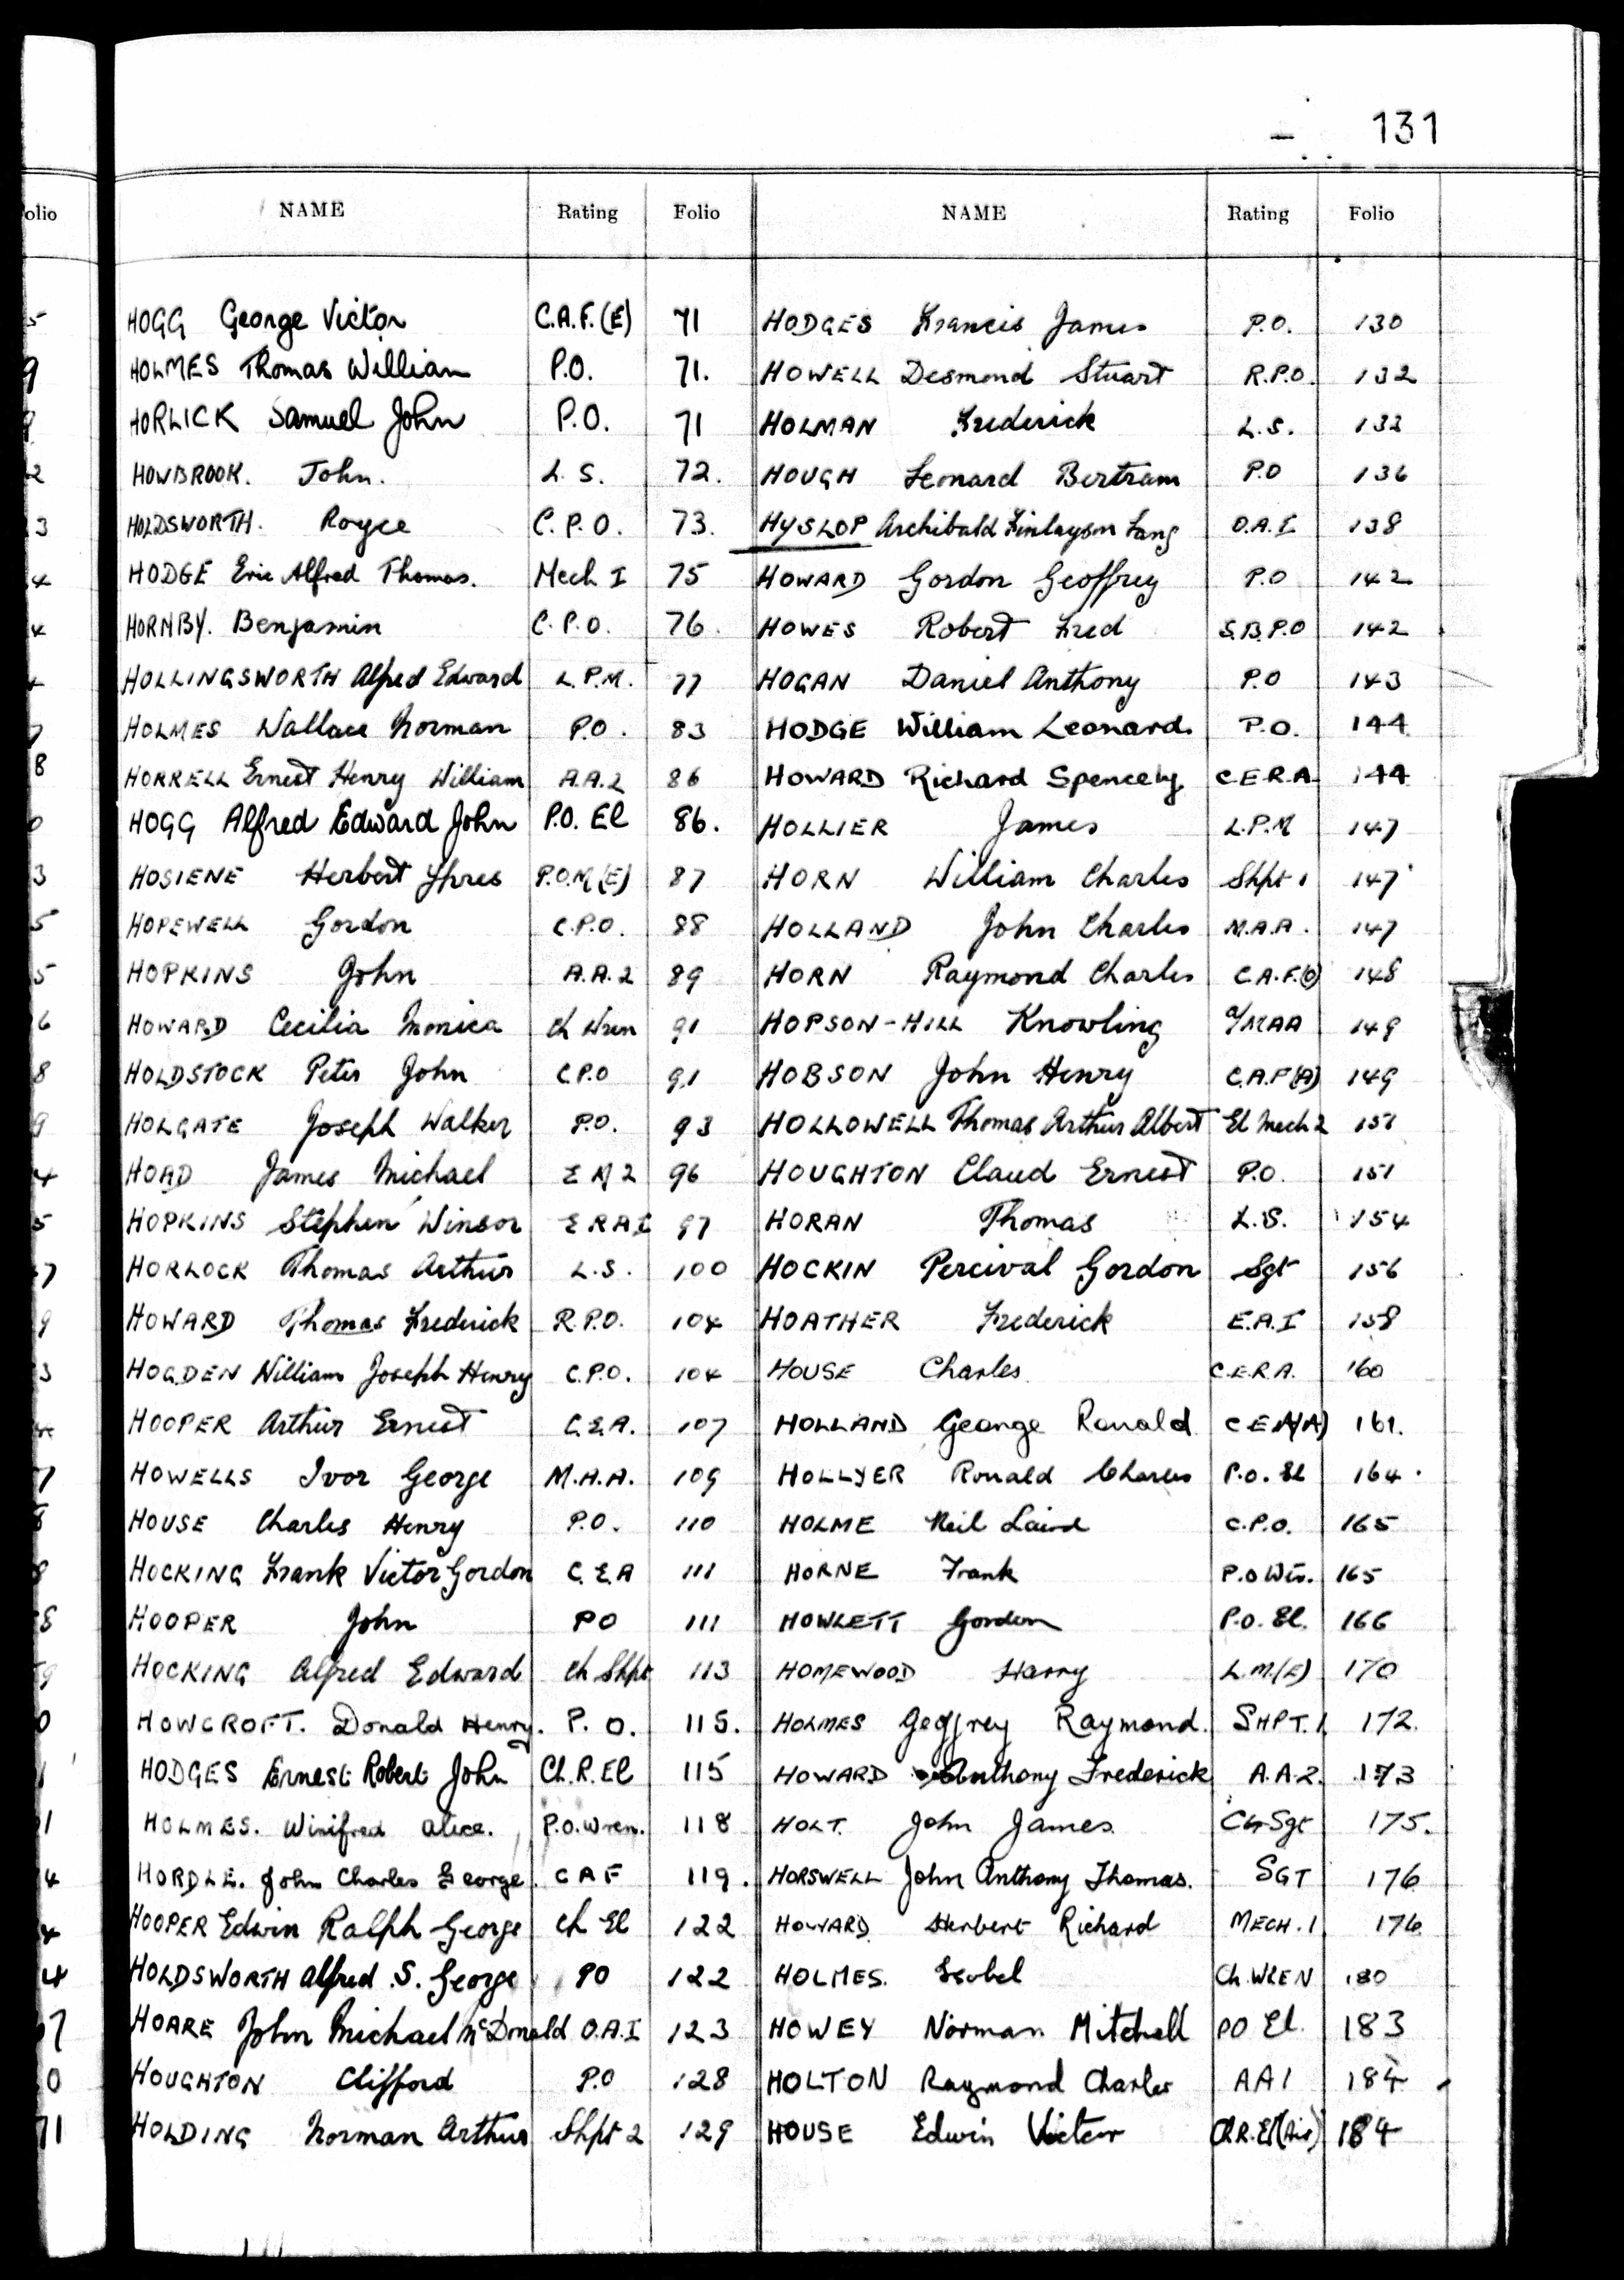 131
olio
NAME Rating Folio NAME Rating Folio
HOGG George Victor C.A.F.(E) 71 HODGES Francis James P.O. 130
HOLMES Thomas William P.O. 71. HOWELL Desmond Stuart R.P.O. 132
HORLICK Samuel John P.O. 71 HOLMAN Frederick L.S. 132
HOWBROOK. John. L.S. 72. HOUGH Leonard Bertram P.O 136
HOLDSWORTH. Royce C.P.O. 73. HYSLOP Archibald Finlayson Lang O.A.I 138
HODGE Eric Alfred Thomas. Mech I 75 HOWARD Gordon Geoffrey P.O 142
HORNBY. Benjamin C.P.O. 76. HOWES Robert Fred S.B.P.O 142
HOLLINGSWORTH Alfred Edward L.P.M. 77 HOGAN Daniel Anthony P.O 143
HOLMES Wallace Norman P.O. 83 HODGE William Leonard. P.O. 144
HORRELL Ernest Henry William A.A.2 86 HOWARD Richard Spencely C.E.R.A 144
HOGG Alfred Edward John P.O. El 86. HOLLIER James L.P.M 147
HOSIENE Herbert Ypres P.O.M(E) 87 HORN William Charles Shpt 1 147
HOPEWELL Gordon C.P.O. 88 HOLLAND John Charles M.A.A. 147
HOPKINS John A.A.2 89 HORN Raymond Charles C.A.F.(O) 148
HOWARD Cecilia Monica Ch Wren 91 HOPSON-HILL Knowling a/MAA 149
HOLDSTOCK Peter John C.P.O 91 HOBSON John Henry C.A.F(A) 149
HOLGATE Joseph Walker P.O. 93 HOLLOWELL Thomas Arthur Albert El Mech 2 151
HOAD James Michael E A 2 96 HOUGHTON Claud Ernest P.O. 151
HOPKINS Stephen Winsor E R A I 97 HORAN Thomas L.S. 154
HORLOCK Thomas Arthur L.S. 100 HOCKIN Percival Gordon Sgt 156
HOWARD Thomas Frederick R.P.O. 104 HOATHER Frederick E.A.I 158
HOGDEN William Joseph Henry C.P.O. 104 HOUSE Charles C.E.R.A. 160
HOOPER Arthur Ernest C.E.A. 107 HOLLAND George Ronald C E A(A) 161.
HOWELLS Ivor George M.A.A. 109 HOLLYER Ronald Charles P.O. El 164.
HOUSE Charles Henry P.O. 110 HOLME Neil Laird C.P.O. 165
HOCKING Frank Victor Gordon C.E.A 111 HORNE Frank P.O Wtr. 165
HOOPER John PO 111 HOWLETT Gordon P.O. El. 166
HOCKING Alfred Edward Ch Shpt 113 HOMEWOOD Harry L.M.(E) 170
HOWCROFT. Donald Henry. P.O. 115. HOLMES Geoffrey Raymond. SHPT.1 172.
HODGES Ernest Robert John Ch.R.El 115 HOWARD Anthony Frederick A.A.2. 173
HOLMES. Winifred Alice. P.O.Wren. 118 HOLT. John James. Clr Sgt 175.
HORDLE. John Charles George. C A F 119. HORSWELL John Anthony Thomas. SGT 176
HOOPER Edwin Ralph George Ch El 122 HOWARD Herbert Richard MECH.1 176
HOLDSWORTH Alfred S. George PO 122 HOLMES. Isobel Ch. WREN 180
HOARE John Michael McDonald O.A.I 123 HOWEY Norman Mitchell PO El. 183
HOUGHTON Clifford P.O 128 HOLTON Raymond Charles AA1 184
HOLDING Norman Arthur Shpt 2 129 HOUSE Edwin Victor Ch.R.El(Air) 184